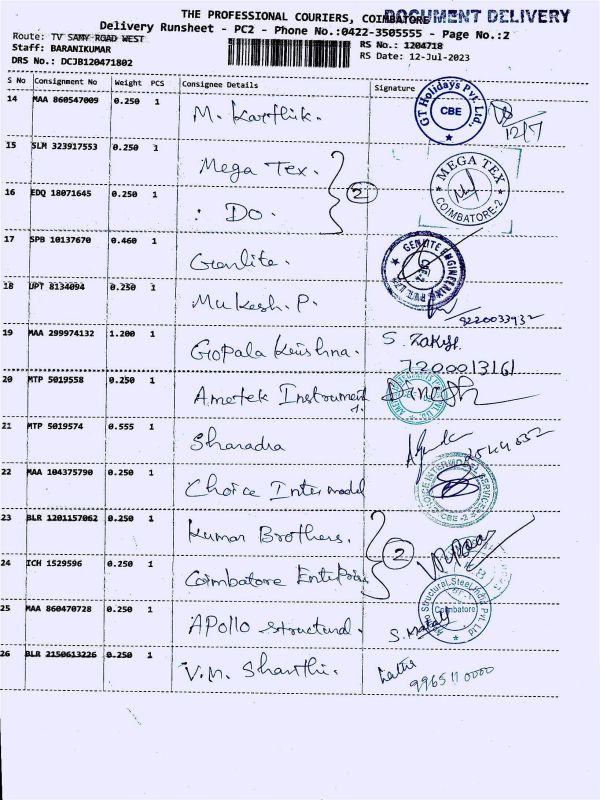 THE PROFESSIONAL COURIERS, COIMBATORE
DOCUMENT DELIVERY
Delivery Runsheet - PC2 - Phone No.:0422-3505555 - Page No.:2
Route: TV SAMY ROAD WEST
RS No.: 1204718
Staff: BARANIKUMAR
RS Date: 12-Jul-2023
DRS No.: DCJB120471802
S No Consignment No Weight PCS Consignee Details Signature
14 MAA 860547009 0.250 1 M. Karthik.
GT Holidays Pvt. Ltd., CBE
12/7
15 SLM 323917553 0.250 1 Mega Tex. 2
MEGA TEX COIMBATORE-2
16 EDQ 18071645 0.250 1 Do.
17 SPB 10137670 0.460 1 Genlite.
GENLITE ENGINEERING PVT. LTD.
18 UPT 8134094 0.250 1 Mukesh. P.
9220033932
19 MAA 299974132 1.200 1 Gopala Krishna. S. Zakir
7200013161
20 MTP 5019558 0.250 1 Ametek Instrument Dinesh
21 MTP 5019574 0.555 1 Sharadra
22 MAA 104375790 0.250 1 Choice Inter modal
CHOICE INTERMODAL SERVICES CBE-2
23 BLR 1201157062 0.250 1 Kumar Brothers. 2
24 ICH 1529596 0.250 1 Coimbatore Enterprises
25 MAA 860470728 0.250 1 APollo structural. S.
Apollo Structural Steel India Pvt. Ltd Coimbatore
26 BLR 2150613226 0.250 1 V.M. Shanthi. Latha
9965110000